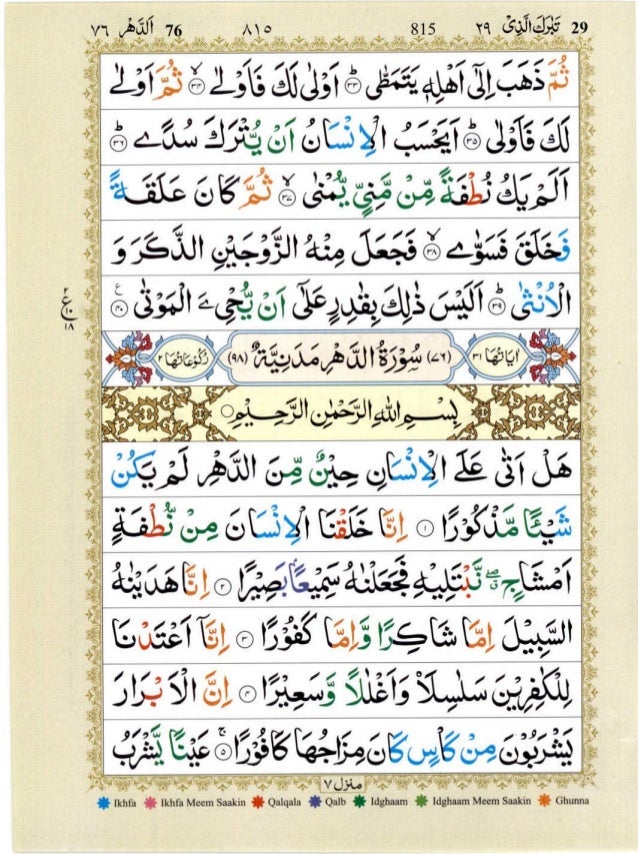 ٧٦ اَلدَّهْر 76 ٨١٥ 815 ٢٩ تَبٰرَكَ الَّذِىْ 29
ثُمَّ ذَهَبَ اِلٰٓى اَهْلِهٖ يَتَمَطّٰىؕ ‏﴿۳۳﴾‏ اَوْلٰى لَكَ فَاَوْلٰىۙ ‏﴿۳۴﴾‏ ثُمَّ اَوْلٰى
لَكَ فَاَوْلٰىؕ ‏﴿۳۵﴾‏ اَيَحْسَبُ الْاِنْسَانُ اَنْ يُّتْرَكَ سُدًىؕ ‏﴿۳۶﴾‏
اَلَمْ يَكُ نُطْفَةً مِّنْ مَّنِىٍّ يُّمْنٰىۙ ‏﴿۳۷﴾‏ ثُمَّ كَانَ عَلَقَةً
فَخَلَقَ فَسَوّٰىۙ ‏﴿۳۸﴾‏ فَجَعَلَ مِنْهُ الزَّوْجَيْنِ الذَّكَرَ وَ
الْاُنْثٰىؕ ‏﴿۳۹﴾‏ اَلَيْسَ ذٰلِكَ بِقٰدِرٍ عَلٰٓى اَنْ يُّحْىَِۧ الْمَوْتٰى ‏﴿۴۰﴾‏
ع ٢ ١٠ ١٨
اٰيَاتُهَا ٣١ (٧٦) سُوْرَةُ الدَّهْرِ مَدَنِيَّةٌ (٩٨) رُكُوْعَاتُهَا ٢
بِسْمِ اللّٰهِ الرَّحْمٰنِ الرَّحِيْمِ
هَلْ اَتٰى عَلَى الْاِنْسَانِ حِيْنٌ مِّنَ الدَّهْرِ لَمْ يَكُنْ
شَيْئًا مَّذْكُوْرًا ‏﴿۱﴾‏ اِنَّا خَلَقْنَا الْاِنْسَانَ مِنْ نُّطْفَةٍ
اَمْشَاجٍۖ نَّبْتَلِيْهِ فَجَعَلْنٰهُ سَمِيْعًۢا بَصِيْرًا ‏﴿۲﴾‏ اِنَّا هَدَيْنٰهُ
السَّبِيْلَ اِمَّا شَاكِرًا وَّاِمَّا كَفُوْرًا ‏﴿۳﴾‏ اِنَّاۤ اَعْتَدْنَا
لِلْكٰفِرِيْنَ سَلٰسِلَا۟ وَاَغْلٰلًا وَّسَعِيْرًا ‏﴿۴﴾‏ اِنَّ الْاَبْرَارَ
يَشْرَبُوْنَ مِنْ كَاْسٍ كَانَ مِزَاجُهَا كَافُوْرًاۚ ‏﴿۵﴾‏ عَيْنًا يَّشْرَبُ
منزل ٧
Ikhfa Ikhfa Meem Saakin Qalqala Qalb Idghaam Idghaam Meem Saakin Ghunna